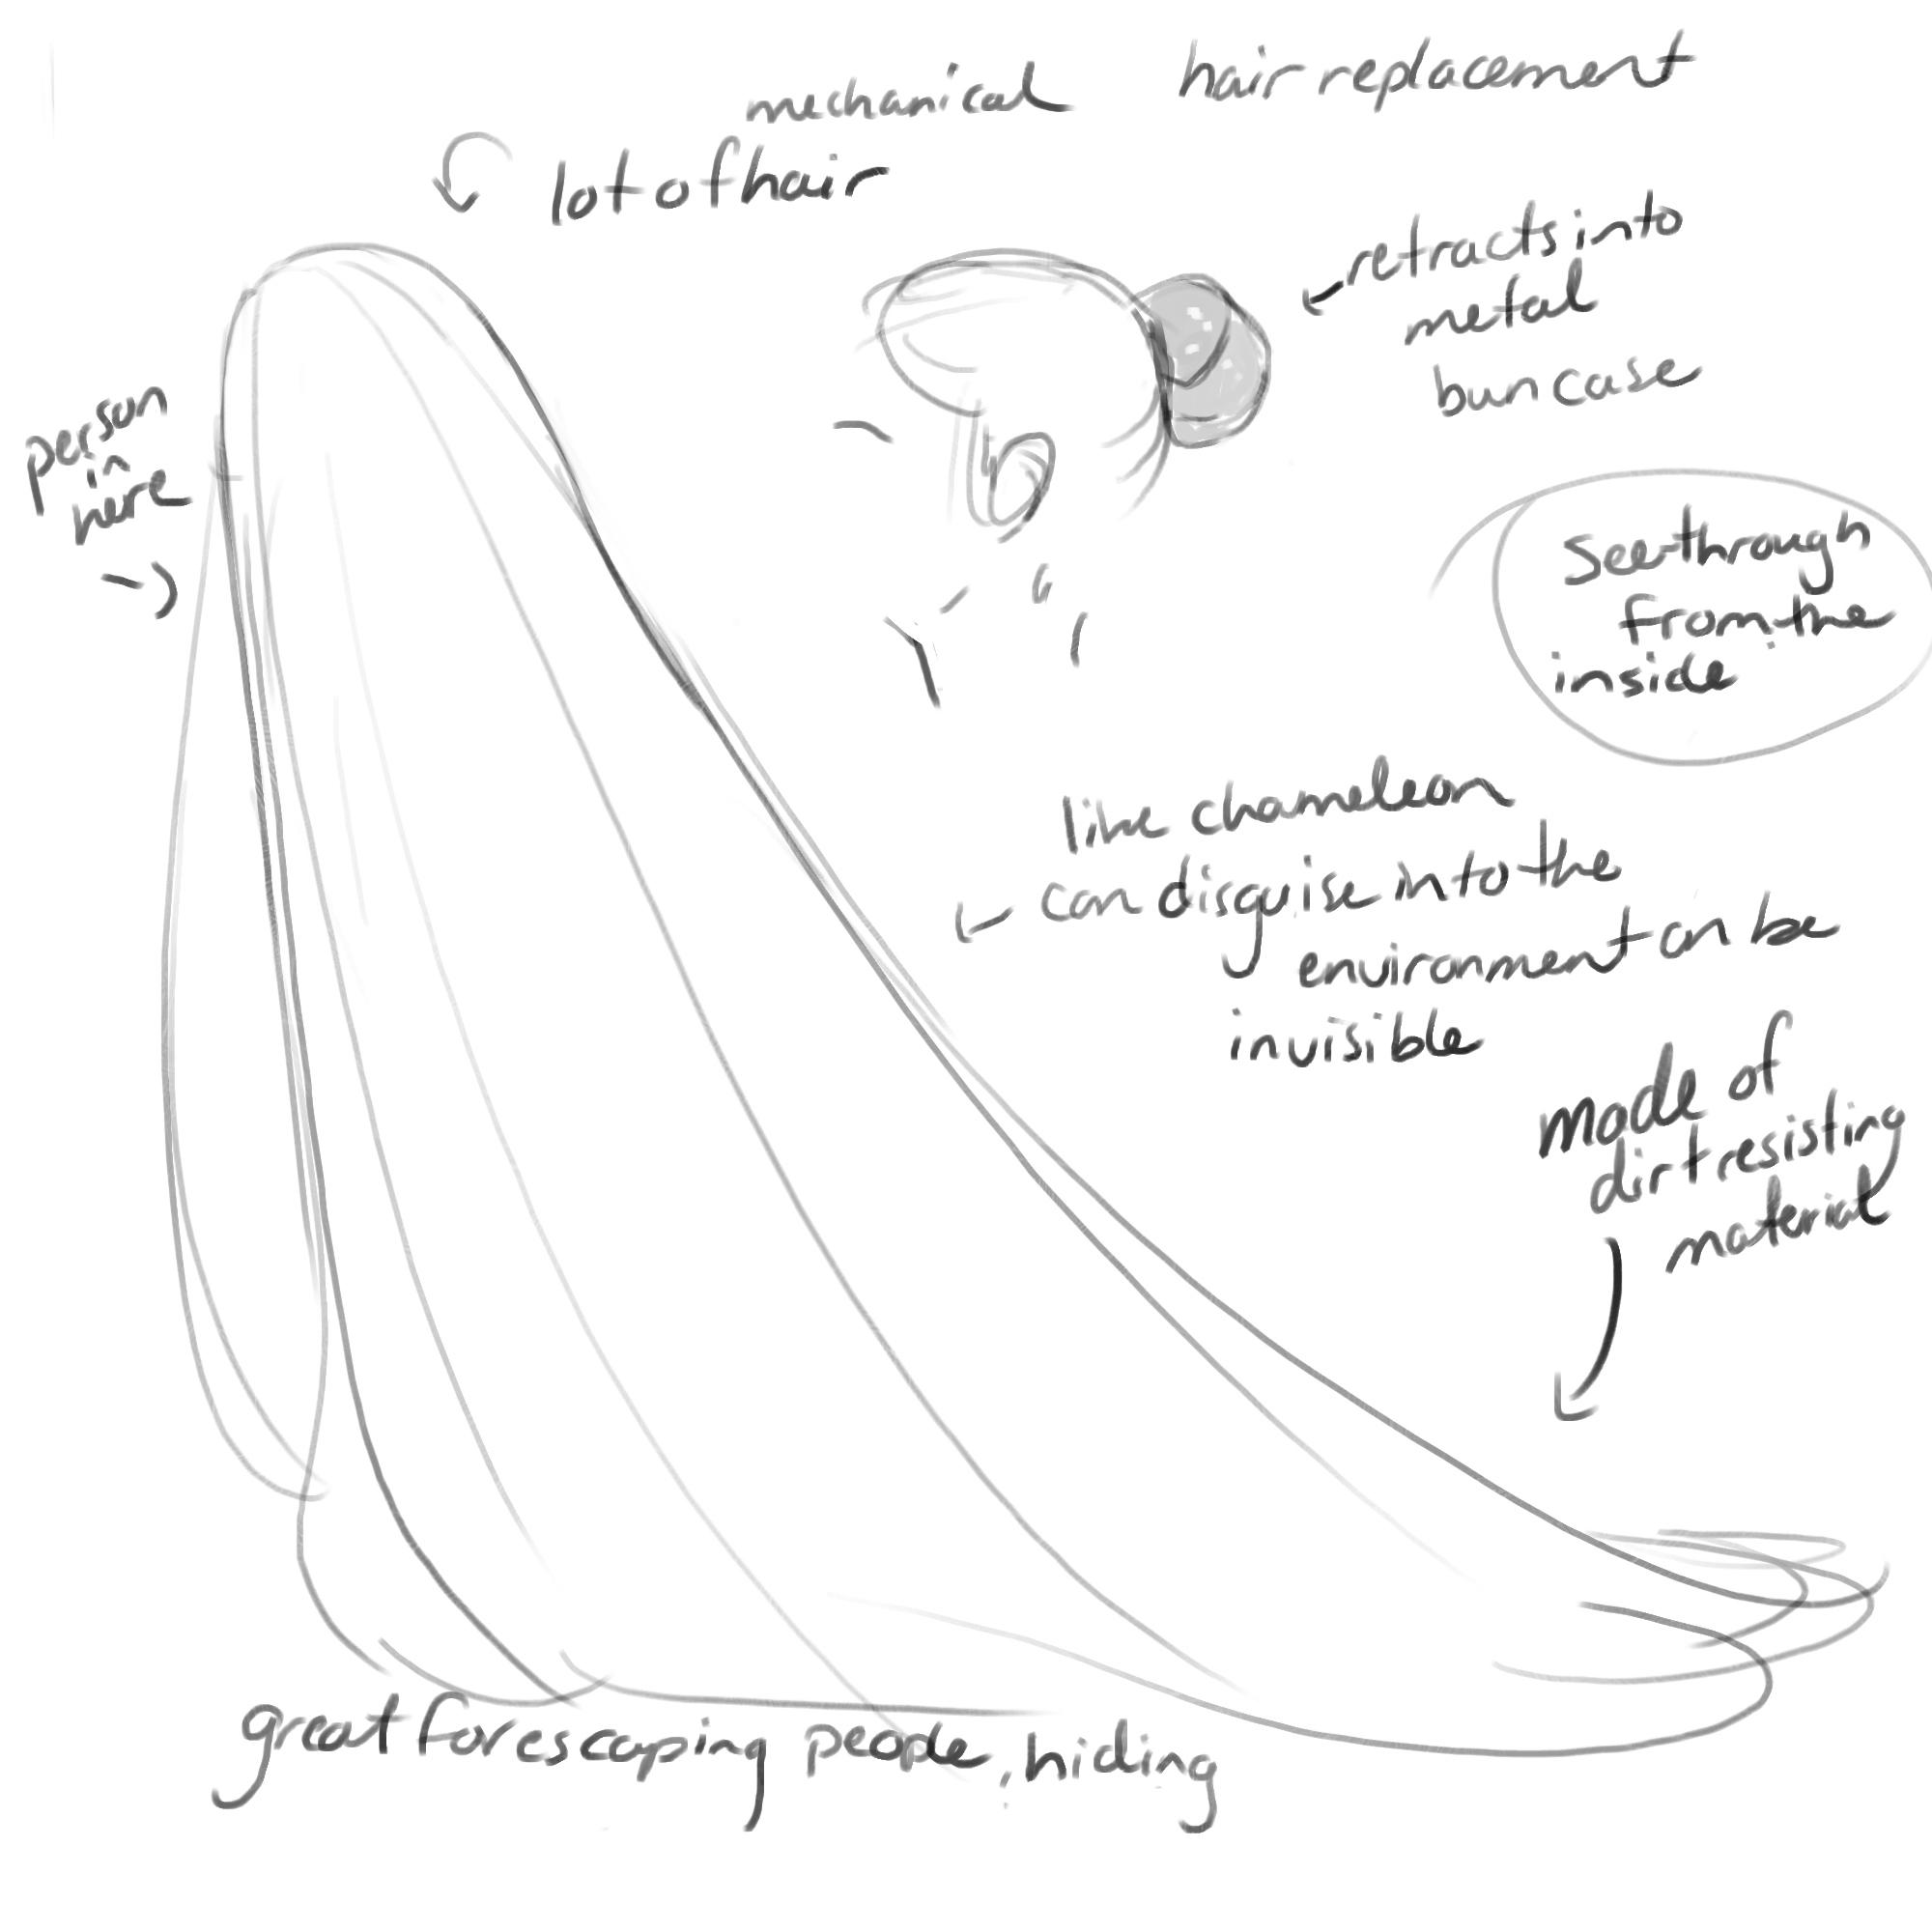 mechanical hair replacement
lot of hair
retracts into
metal
bun case
person
in
here
see through
from the
inside
like chameleon
can disguise into the
environment can be
invisible
made of
dirt resisting
material
great for escaping people, hiding